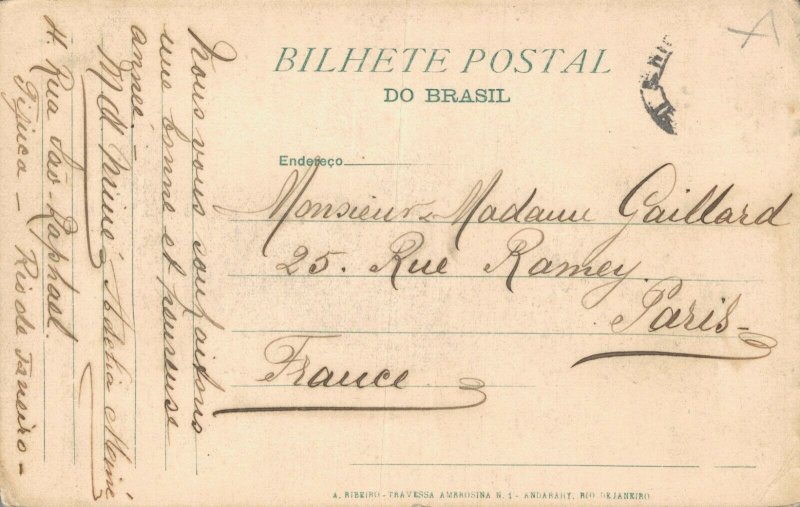 BILHETE POSTAL
DO BRASIL
Endereço
Monsieur & Madame Gaillard
25. Rue Ramey.
Paris-
France
Nous vous souhaitons
une bonne et heureuse
année -
Adelia
4. Rua São-Raphael.
Tijuca - Rio de Janeiro -
A. RIBEIRO - TRAVESSA AMBROSINA N. 1 - ANDARAHY, RIO DEJANEIRO